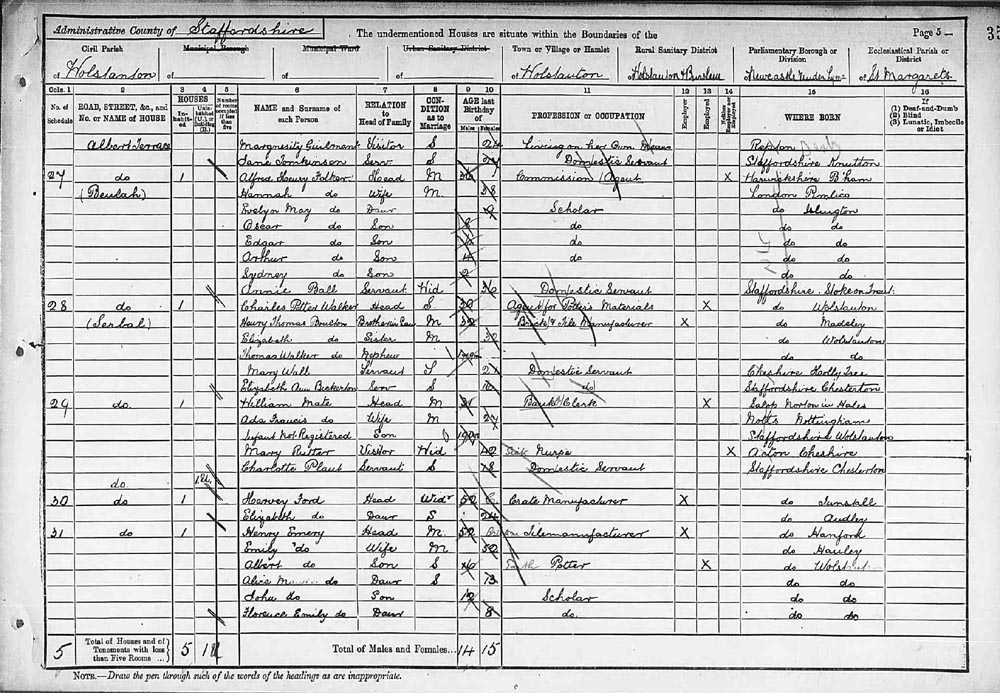 Administrative County of Staffordshire
The undermentioned Houses are situate within the Boundaries of the
Page 5
35
Civil Parish
of Wolstanton
Municipal Borough
of
Municipal Ward
of
Urban Sanitary District
of
Town or Village or Hamlet
of Wolstanton
Rural Sanitary District
of Wolstanton & Burslem
Parliamentary Borough or Division
of Newcastle under Lyme
Ecclesiastical Parish or District
of St Margarets
Cols. 1 2 3 4 5 6 7 8 9 10 11 12 13 14 15 16
No. of Schedule
ROAD, STREET, &c., and No. or NAME of HOUSE
HOUSES
Inhabited
Uninhabited (U.), or Building (B.)
Number of rooms occupied if less than five
NAME and Surname of each Person
RELATION to Head of Family
CONDITION as to Marriage
AGE last Birthday of
Males Females
PROFESSION or OCCUPATION
Employer
Employed
Neither Employer nor Employed
WHERE BORN
If
(1) Deaf-and-Dumb
(2) Blind
(3) Lunatic, Imbecile or Idiot
Albert Terrace Visitor S 24 Living on her Own Means Repton
Jane Tomkinson Serv S Domestic Servant Staffordshire Knutton
27 do 1 Alfred Henry Folker Head M Commission Agent X Warwickshire B'ham
(Beulah) Hannah do Wife M 38 London Pimlico
Evelyn May do Daur 9 Scholar do Islington
Oscar do Son 8 do do do
Edgar do Son do do do
Arthur do Son 4 do do do
Sydney do Son 2 do do
Annie Ball Servant Wid 36 Domestic Servant Staffordshire Stoke on Trent
28 do 1 Charles Potter Walker Head S 30 Agent for Potters Materials X do Wolstanton
(Serbal) Henry Thomas Boulton Brother in Law M 32 Brick & Tile Manufacturer X do Madeley
Elizabeth do Sister M 32 do Wolstanton
Thomas Walker do Nephew do do
Mary Wall Servant S 21 Domestic Servant Cheshire Holly Tree
Elizabeth Ann Bickerton Serv S 16 do Staffordshire Chesterton
29 do 1 William Mate Head M 31 Bank Clerk X Salop Norton in Hales
Ada Francis do Wife M 27 Notts Nottingham
Infant Not Registered Son Staffordshire Wolstanton
Mary Rutter Visitor Wid 42 Nurse X Acton Cheshire
Charlotte Plant Servant S 18 Domestic Servant Staffordshire Chesterton
do 1 U.
30 do 1 Harvey Ford Head Widr 52 Crate Manufacturer X do Tunstall
Elizabeth do Daur S 24 do Audley
31 do 1 Henry Emery Head M 52 Tile manufacturer X do Hanford
Emily do Wife M 52 do Hanley
Albert do Son S Potter X do Wolst
Alice do Daur S 13 do do
John do Son 12 Scholar do do
Florence Emily do Daur 8 do do do
5 Total of Houses and of Tenements with less than Five Rooms ... 5 1
Total of Males and Females... 14 15
NOTE.—Draw the pen through such of the words of the headings as are inappropriate.